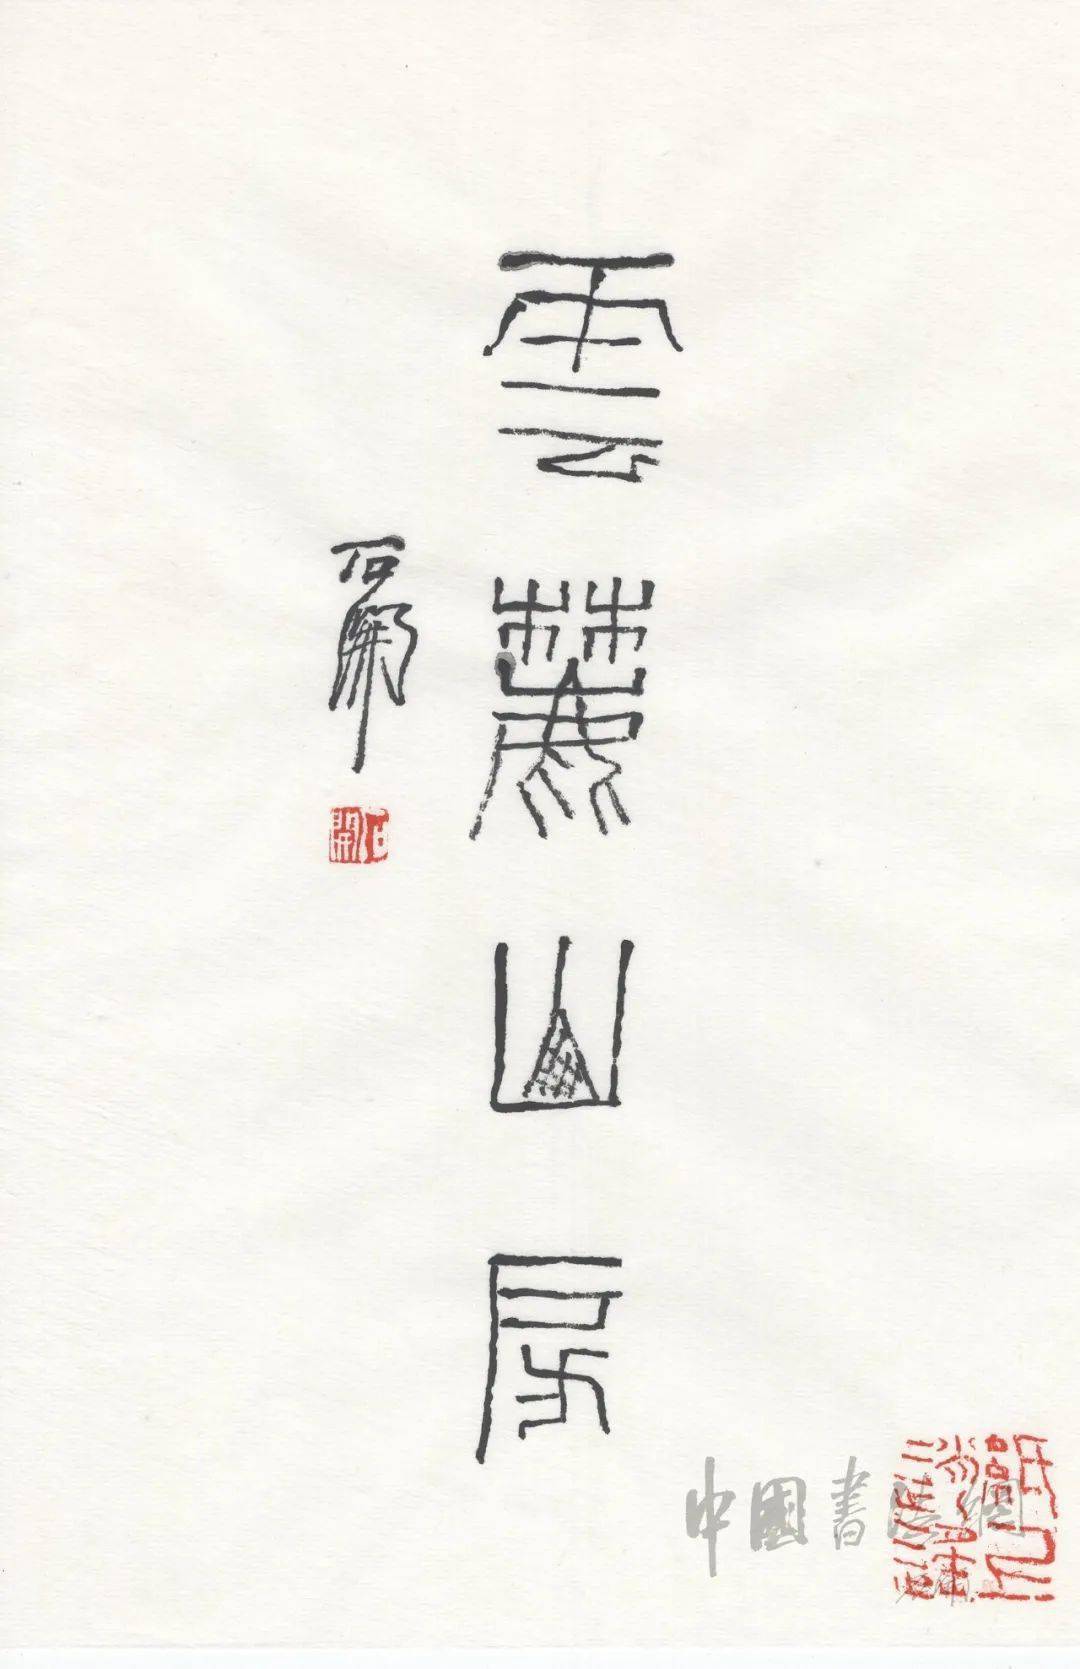 雲麓山房
石開
石開
中國書法網